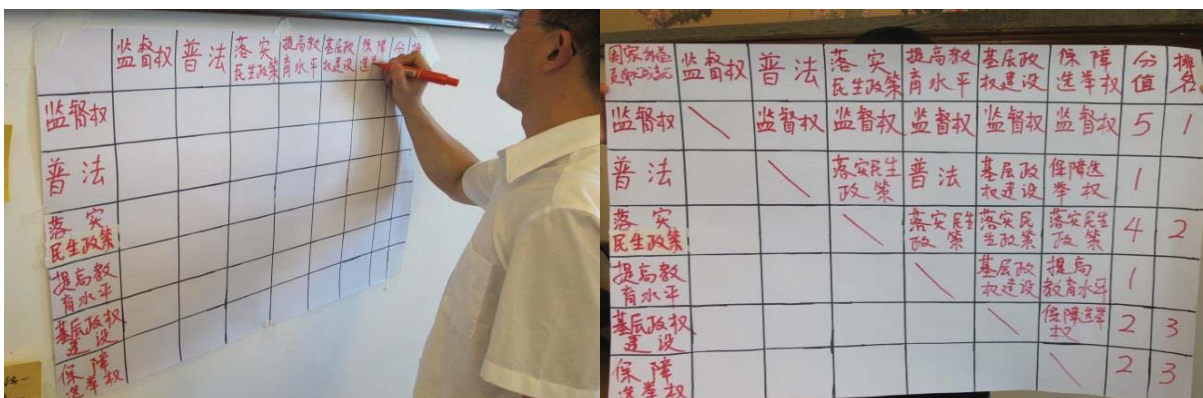 监督权 普法 落实民生政策 提高教育水平 基层政权建设 保障选举 分
监督权
普法
落实
民生政策
提高教
育水平
基层政权
建设
保障
选举权
监督权 普法 落实民生政策 提高教育水平 基层政权建设 保障选举权 分值 排名
监督权 监督权 监督权 监督权 监督权 监督权 5 1
普法 落实民生政策 普法 基层政权建设 保障选举权 1
落实民生政策 落实民生政策 落实民生政策 落实民生政策 4 2
提高教育水平 基层政权建设 提高教育水平 1
基层政权建设 保障选举权 2 3
保障选举权 2 3